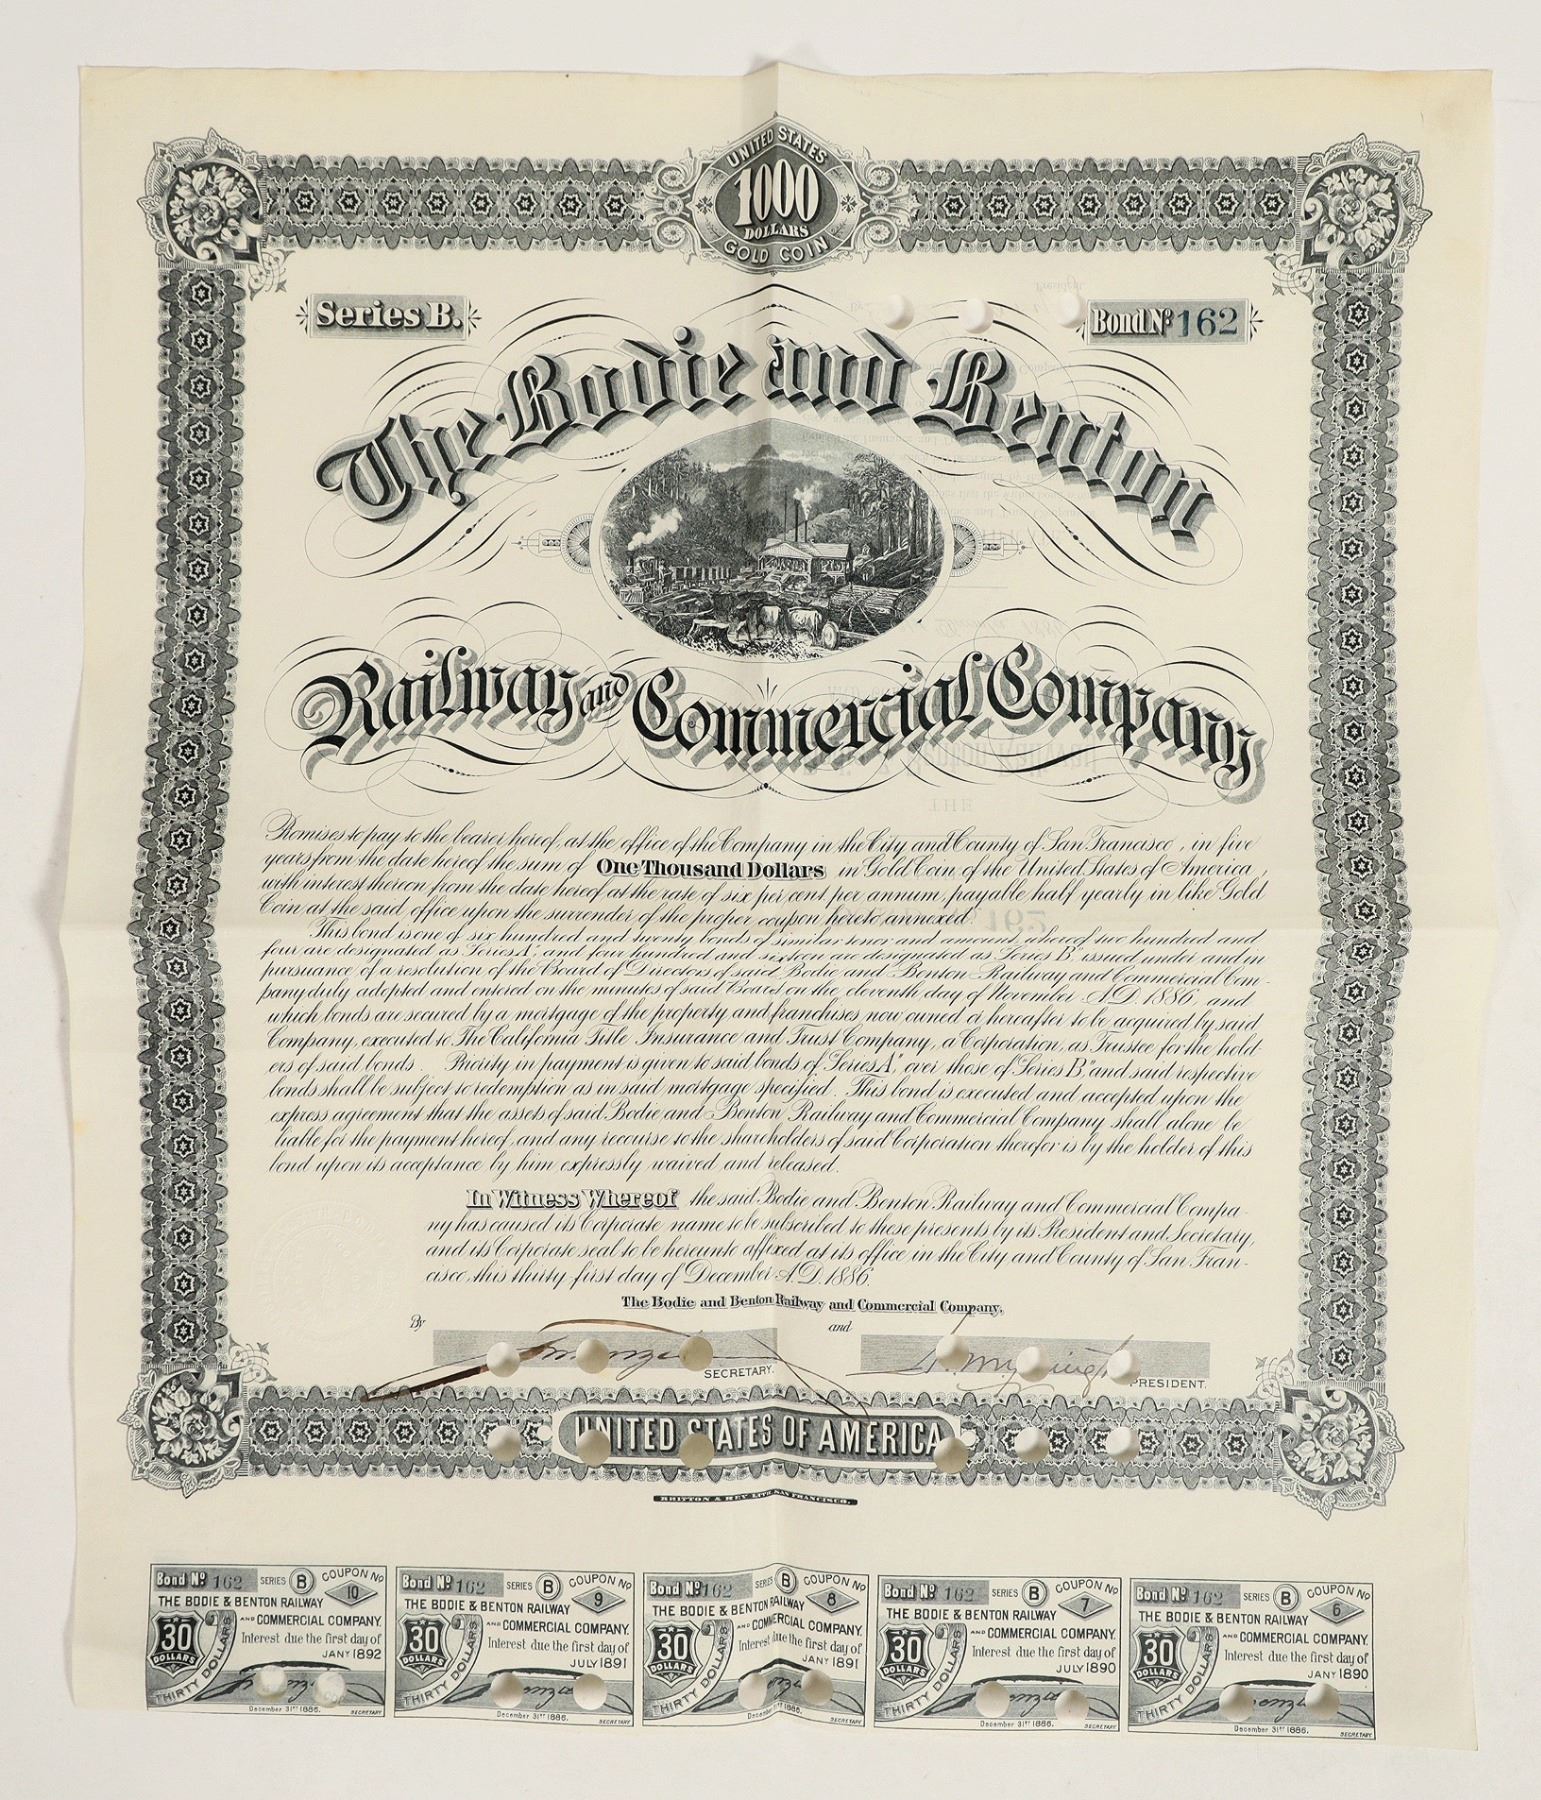 UNITED STATES
1000
DOLLARS
GOLD COIN
Series B.
Bond No 162
The Bodie and Benton
Railway and Commercial Company
Promises to pay to the bearer hereof, at the office of the Company in the City and County of San Francisco, in five
years from the date hereof the sum of One Thousand Dollars in Gold Coin of the United States of America,
with interest thereon from the date hereof at the rate of six per cent per annum, payable half yearly in like Gold
Coin at the said office upon the surrender of the proper coupon hereto annexed.
This bond is one of six hundred and twenty bonds of similar tenor and amount, whereof two hundred and
four are designated as "Series A", and four hundred and sixteen are designated as "Series B" issued under and in
pursuance of a resolution of the Board of Directors of said Bodie and Benton Railway and Commercial Com-
pany duly adopted and entered on the minutes of said Board on the eleventh day of November A.D. 1886, and
which bonds are secured by a mortgage of the property and franchises, now owned or hereafter to be acquired by said
Company, executed to The California Title Insurance and Trust Company, a Corporation, as Trustee for the hold-
ers of said bonds. Priority in payment is given to said bonds of "Series A", over those of "Series B", and said respective
bonds shall be subject to redemption as in said mortgage specified. This bond is executed and accepted upon the
express agreement that the assets of said Bodie and Benton Railway and Commercial Company shall alone be
liable for the payment hereof, and any recourse to the shareholders of said Corporation therefor is by the holder of this
bond upon its acceptance by him expressly waived and released.
In Witness Whereof the said Bodie and Benton Railway and Commercial Compa-
ny has caused its Corporate name to be subscribed to these presents by its President and Secretary,
and its Corporate seal to be hereunto affixed at its office in the City and County of San Fran-
cisco, this thirty-first day of December A.D. 1886.
The Bodie and Benton Railway and Commercial Company,
By
and
SECRETARY.
PRESIDENT.
UNITED STATES OF AMERICA
BRITTON & REY LITH. SAN FRANCISCO.
Bond No 162 SERIES B COUPON No 10
THE BODIE & BENTON RAILWAY
AND COMMERCIAL COMPANY.
30 DOLLARS
THIRTY DOLLARS
Interest due the first day of
JANY 1892
December 31st 1886.
SECRETARY
Bond No 162 SERIES B COUPON No 9
THE BODIE & BENTON RAILWAY
AND COMMERCIAL COMPANY.
30 DOLLARS
THIRTY DOLLARS
Interest due the first day of
JULY 1891
December 31st 1886.
SECRETARY
Bond No 162 SERIES B COUPON No 8
THE BODIE & BENTON RAILWAY
AND COMMERCIAL COMPANY.
30 DOLLARS
THIRTY DOLLARS
Interest due the first day of
JANY 1891
December 31st 1886.
SECRETARY
Bond No 162 SERIES B COUPON No 7
THE BODIE & BENTON RAILWAY
AND COMMERCIAL COMPANY.
30 DOLLARS
THIRTY DOLLARS
Interest due the first day of
JULY 1890
December 31st 1886.
SECRETARY
Bond No 162 SERIES B COUPON No 6
THE BODIE & BENTON RAILWAY
AND COMMERCIAL COMPANY.
30 DOLLARS
THIRTY DOLLARS
Interest due the first day of
JANY 1890
December 31st 1886.
SECRETARY